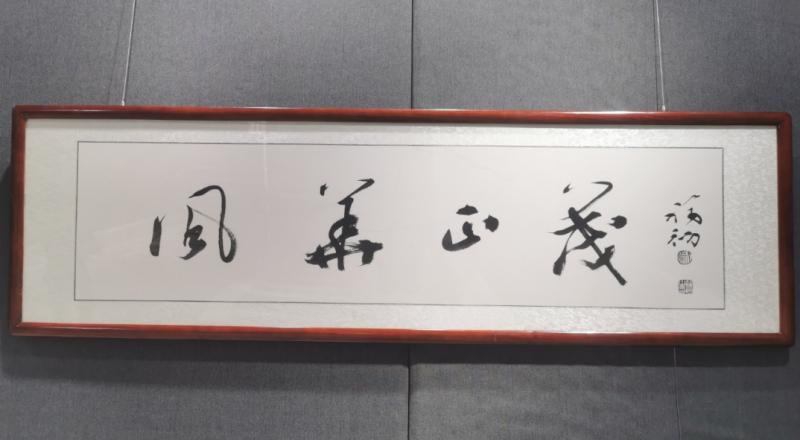 風華正茂
福初